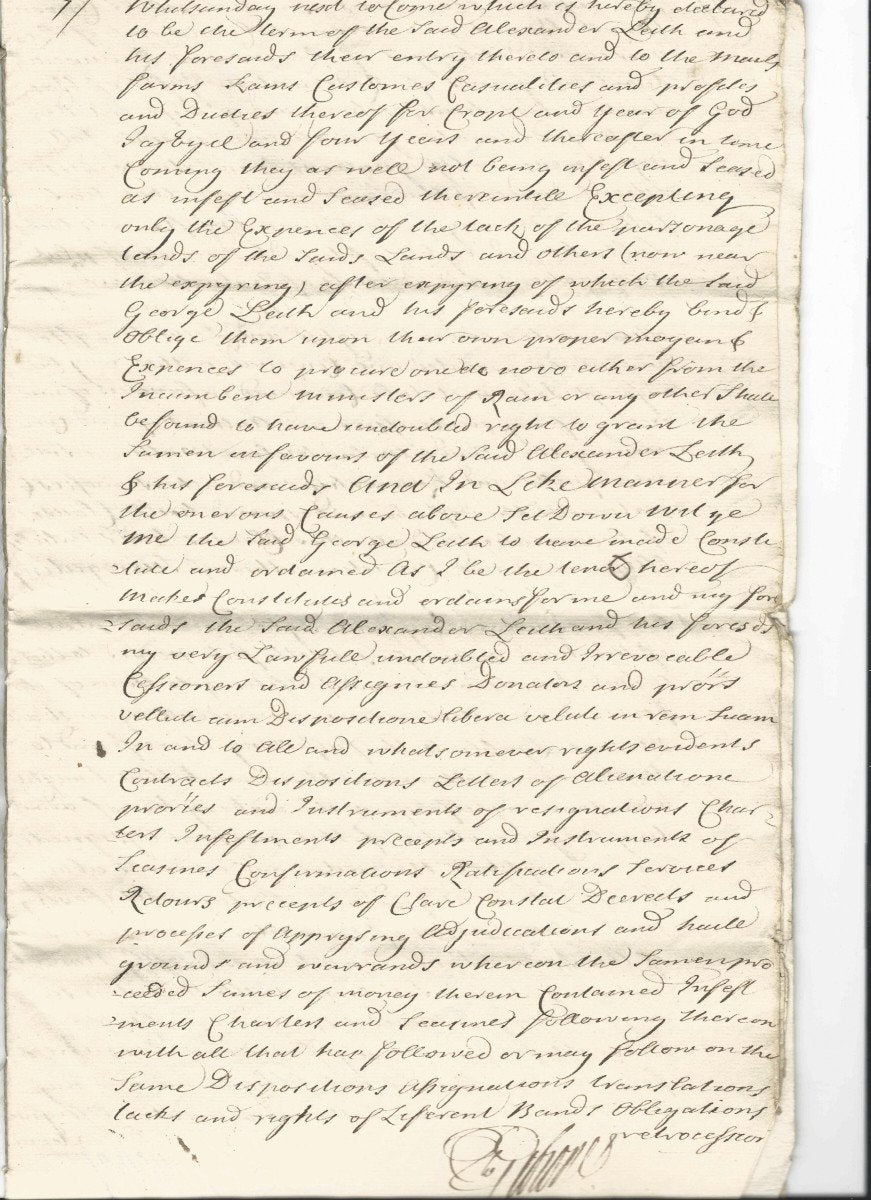 7/ Whitsunday next to come which is hereby declared
to be the term of the said Alexander Leith and
his foresaids their entry thereto and to the mails
farms Kains Customes Casualities and profeits
and Duties thereof for Cropt and year of God
Jajvijc and four years and thereafter in time
Coming they as well not being infeft and seased
as infeft and seased thereintill Excepting
only the Expences of the tack of the parsonage
tiends of the saids Lands and others (now near
the expyring) after expyring of which the said
George Leith and his foresaids hereby bind &
Oblige them upon their own proper moyan &
Expences to procure one de novo either from the
Incumbent ministers of Rain or any other shall
be found to have undoubted right to grant the
Samen in favours of the said Alexander Leith
& his foresaids And In Like manner for
the onerous Causes above Set Down Wit ye
me the said George Leith to have made Consti
-tute and ordained As I be the tenor hereof
makes Constitutes and ordains for me and my for
-saids the said Alexander Leith and his fores:ds
my very Lawfull undoubted and Irrevocable
Cessioners and Assignies Donators and prõrs
vellute cum Dispositione libera velute in rem suam
In and to All and whatsomever rights evidents
Contracts Dispositions Letters of Alienatione
prories and Instruments of resignations Char-
-ters Infeftments precepts and Instruments of
Seasines Confirmations Ratifications Services
Retours precepts of Clare Constat Decreets and
processes of Apprysing Adjudications and haill
grounds and warrands whereon the Samen pro
-ceeded Sumes of money therein Contained Infeft
-ments Charters and Seasines following thereon
with all that has followed or may follow on the
Same Dispositions Assignations translations
tacks and rights of Liferent Bands Obligations
retrocession